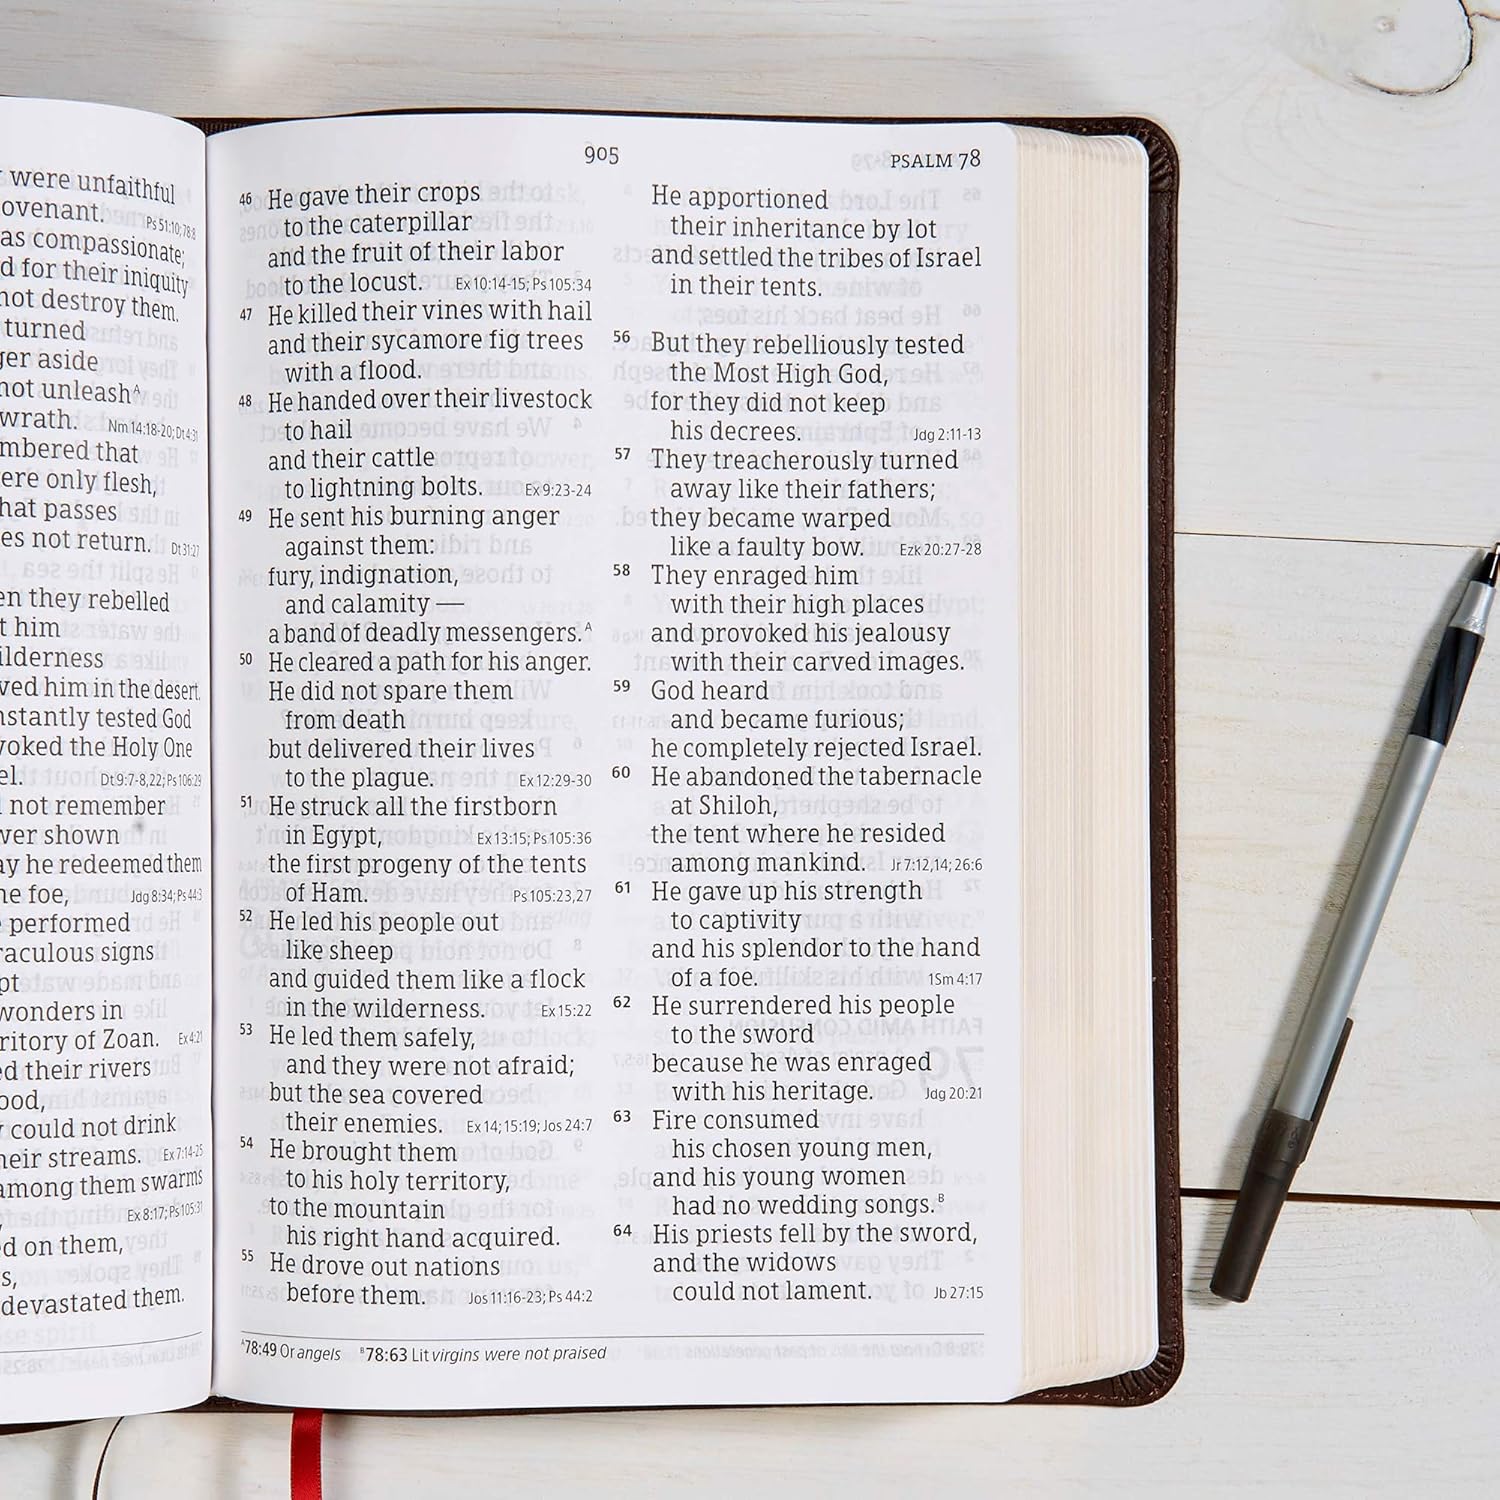 were unfaithful
ovenant. Ps 51:10; 78:8
as compassionate;
d for their iniquity
not destroy them.
turned
ger aside
not unleashᴬ
wrath. Nm 14:18-20; Dt 4:31
mbered that
ere only flesh,
hat passes
es not return. Dt 31:27
en they rebelled
t him
ilderness
ved him in the desert.
nstantly tested God
voked the Holy One
el. Dt 9:7-8,22; Ps 106:29
not remember
ver shown
ay he redeemed them
he foe, Jdg 8:34; Ps 44:3
performed
raculous signs
pt
wonders in
ritory of Zoan. Ex 4:21
ed their rivers
ood,
y could not drink
heir streams. Ex 7:14-25
among them swarms
Ex 8:17; Ps 105:31
ed on them,
s,
devastated them.
905
PSALM 78
46 He gave their crops
to the caterpillar
and the fruit of their labor
to the locust. Ex 10:14-15; Ps 105:34
47 He killed their vines with hail
and their sycamore fig trees
with a flood.
48 He handed over their livestock
to hail
and their cattle
to lightning bolts. Ex 9:23-24
49 He sent his burning anger
against them:
fury, indignation,
and calamity —
a band of deadly messengers.ᴬ
50 He cleared a path for his anger.
He did not spare them
from death
but delivered their lives
to the plague. Ex 12:29-30
51 He struck all the firstborn
in Egypt, Ex 13:15; Ps 105:36
the first progeny of the tents
of Ham. Ps 105:23,27
52 He led his people out
like sheep
and guided them like a flock
in the wilderness. Ex 15:22
53 He led them safely,
and they were not afraid;
but the sea covered
their enemies. Ex 14; 15:19; Jos 24:7
54 He brought them
to his holy territory,
to the mountain
his right hand acquired.
55 He drove out nations
before them. Jos 11:16-23; Ps 44:2
He apportioned
their inheritance by lot
and settled the tribes of Israel
in their tents.
56 But they rebelliously tested
the Most High God,
for they did not keep
his decrees. Jdg 2:11-13
57 They treacherously turned
away like their fathers;
they became warped
like a faulty bow. Ezk 20:27-28
58 They enraged him
with their high places
and provoked his jealousy
with their carved images.
59 God heard
and became furious;
he completely rejected Israel.
60 He abandoned the tabernacle
at Shiloh,
the tent where he resided
among mankind. Jr 7:12,14; 26:6
61 He gave up his strength
to captivity
and his splendor to the hand
of a foe. 1Sm 4:17
62 He surrendered his people
to the sword
because he was enraged
with his heritage. Jdg 20:21
63 Fire consumed
his chosen young men,
and his young women
had no wedding songs.ᴮ
64 His priests fell by the sword,
and the widows
could not lament. Jb 27:15
ᴬ78:49 Or angels ᴮ78:63 Lit virgins were not praised